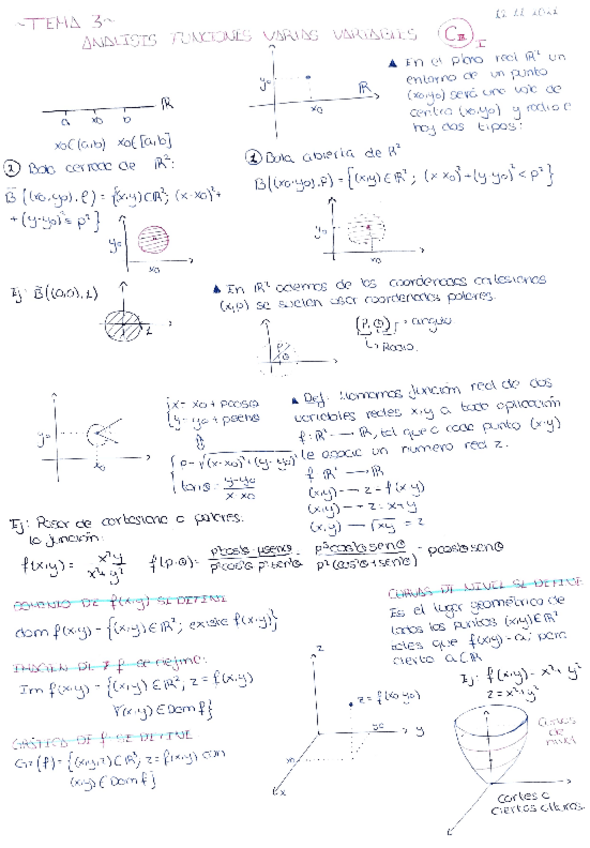 ~TEMA 3~
12 11 2021
ANALISIS FUNCIONES VARIAS VARIABLES
▲ En el plano real R² un
entorno de un punto
(x0,y0) será una bola de
centro (x0,y0) y radio ρ
hay dos tipos:
y0
x0
R
R
a x0 b
x0∈(a,b) x0∈[a,b]
② Bola cerrada de R²:
B̄((x0,y0),ρ) = {(x,y)∈R²; (x-x0)²+
+(y-y0)²≤ρ²}
① Bola abierta de R²
B((x0,y0),ρ) = {(x,y)∈R²; (x-x0)²+(y-y0)²<ρ²}
y0
x0
y0
x0
Ej: B̄((0,0),1)
1
▲ En R² además de las coordenadas cartesianas
se suelen usar coordenadas polares.
(ρ,θ) → ángulo
↳ Radio.
ρ
θ
y0
x0
{x = x0 + ρcosθ
{y = y0 + ρsenθ
{ρ = √(x-x0)²+(y-y0)²
{tanθ = y-y0 / x-x0
▲ Def: Llamamos función real de dos
variables reales x,y a toda aplicación
f: R² → R, tal que a cada punto (x,y)
le asocia un numero real z.
f: R² → R
(x,y) → z = f(x,y)
(x,y) → z = x+y
(x,y) → √xy = z
Ej: Pasar de cartesiana a polares:
la función:
f(x,y) = x²y / x²+y²
DOMINIO DE f(x,y) SE DEFINE
dom f(x,y) = {(x,y)∈R²; existe f(x,y)}
IMAGEN DE f se define:
Im f(x,y) = {(x,y)∈R²; z = f(x,y)
∀(x,y)∈Dom f}
GRÁFICA DE f SE DEFINE
Gr(f) = {(x,y,z)∈R³; z = f(x,y) con
(x,y)∈Dom f}
z
z = f(x0,y0)
y0
y
x0
x
CURVAS DE NIVEL SE DEFINE
Es el lugar geométrico de
todos los puntos (x,y)∈R²
tales que f(x,y) = a; para
cierto a∈R
Ej: f(x,y) = x²+y²
z = x²+y²
Curvas
de
nivel
cortes a
ciertas alturas.